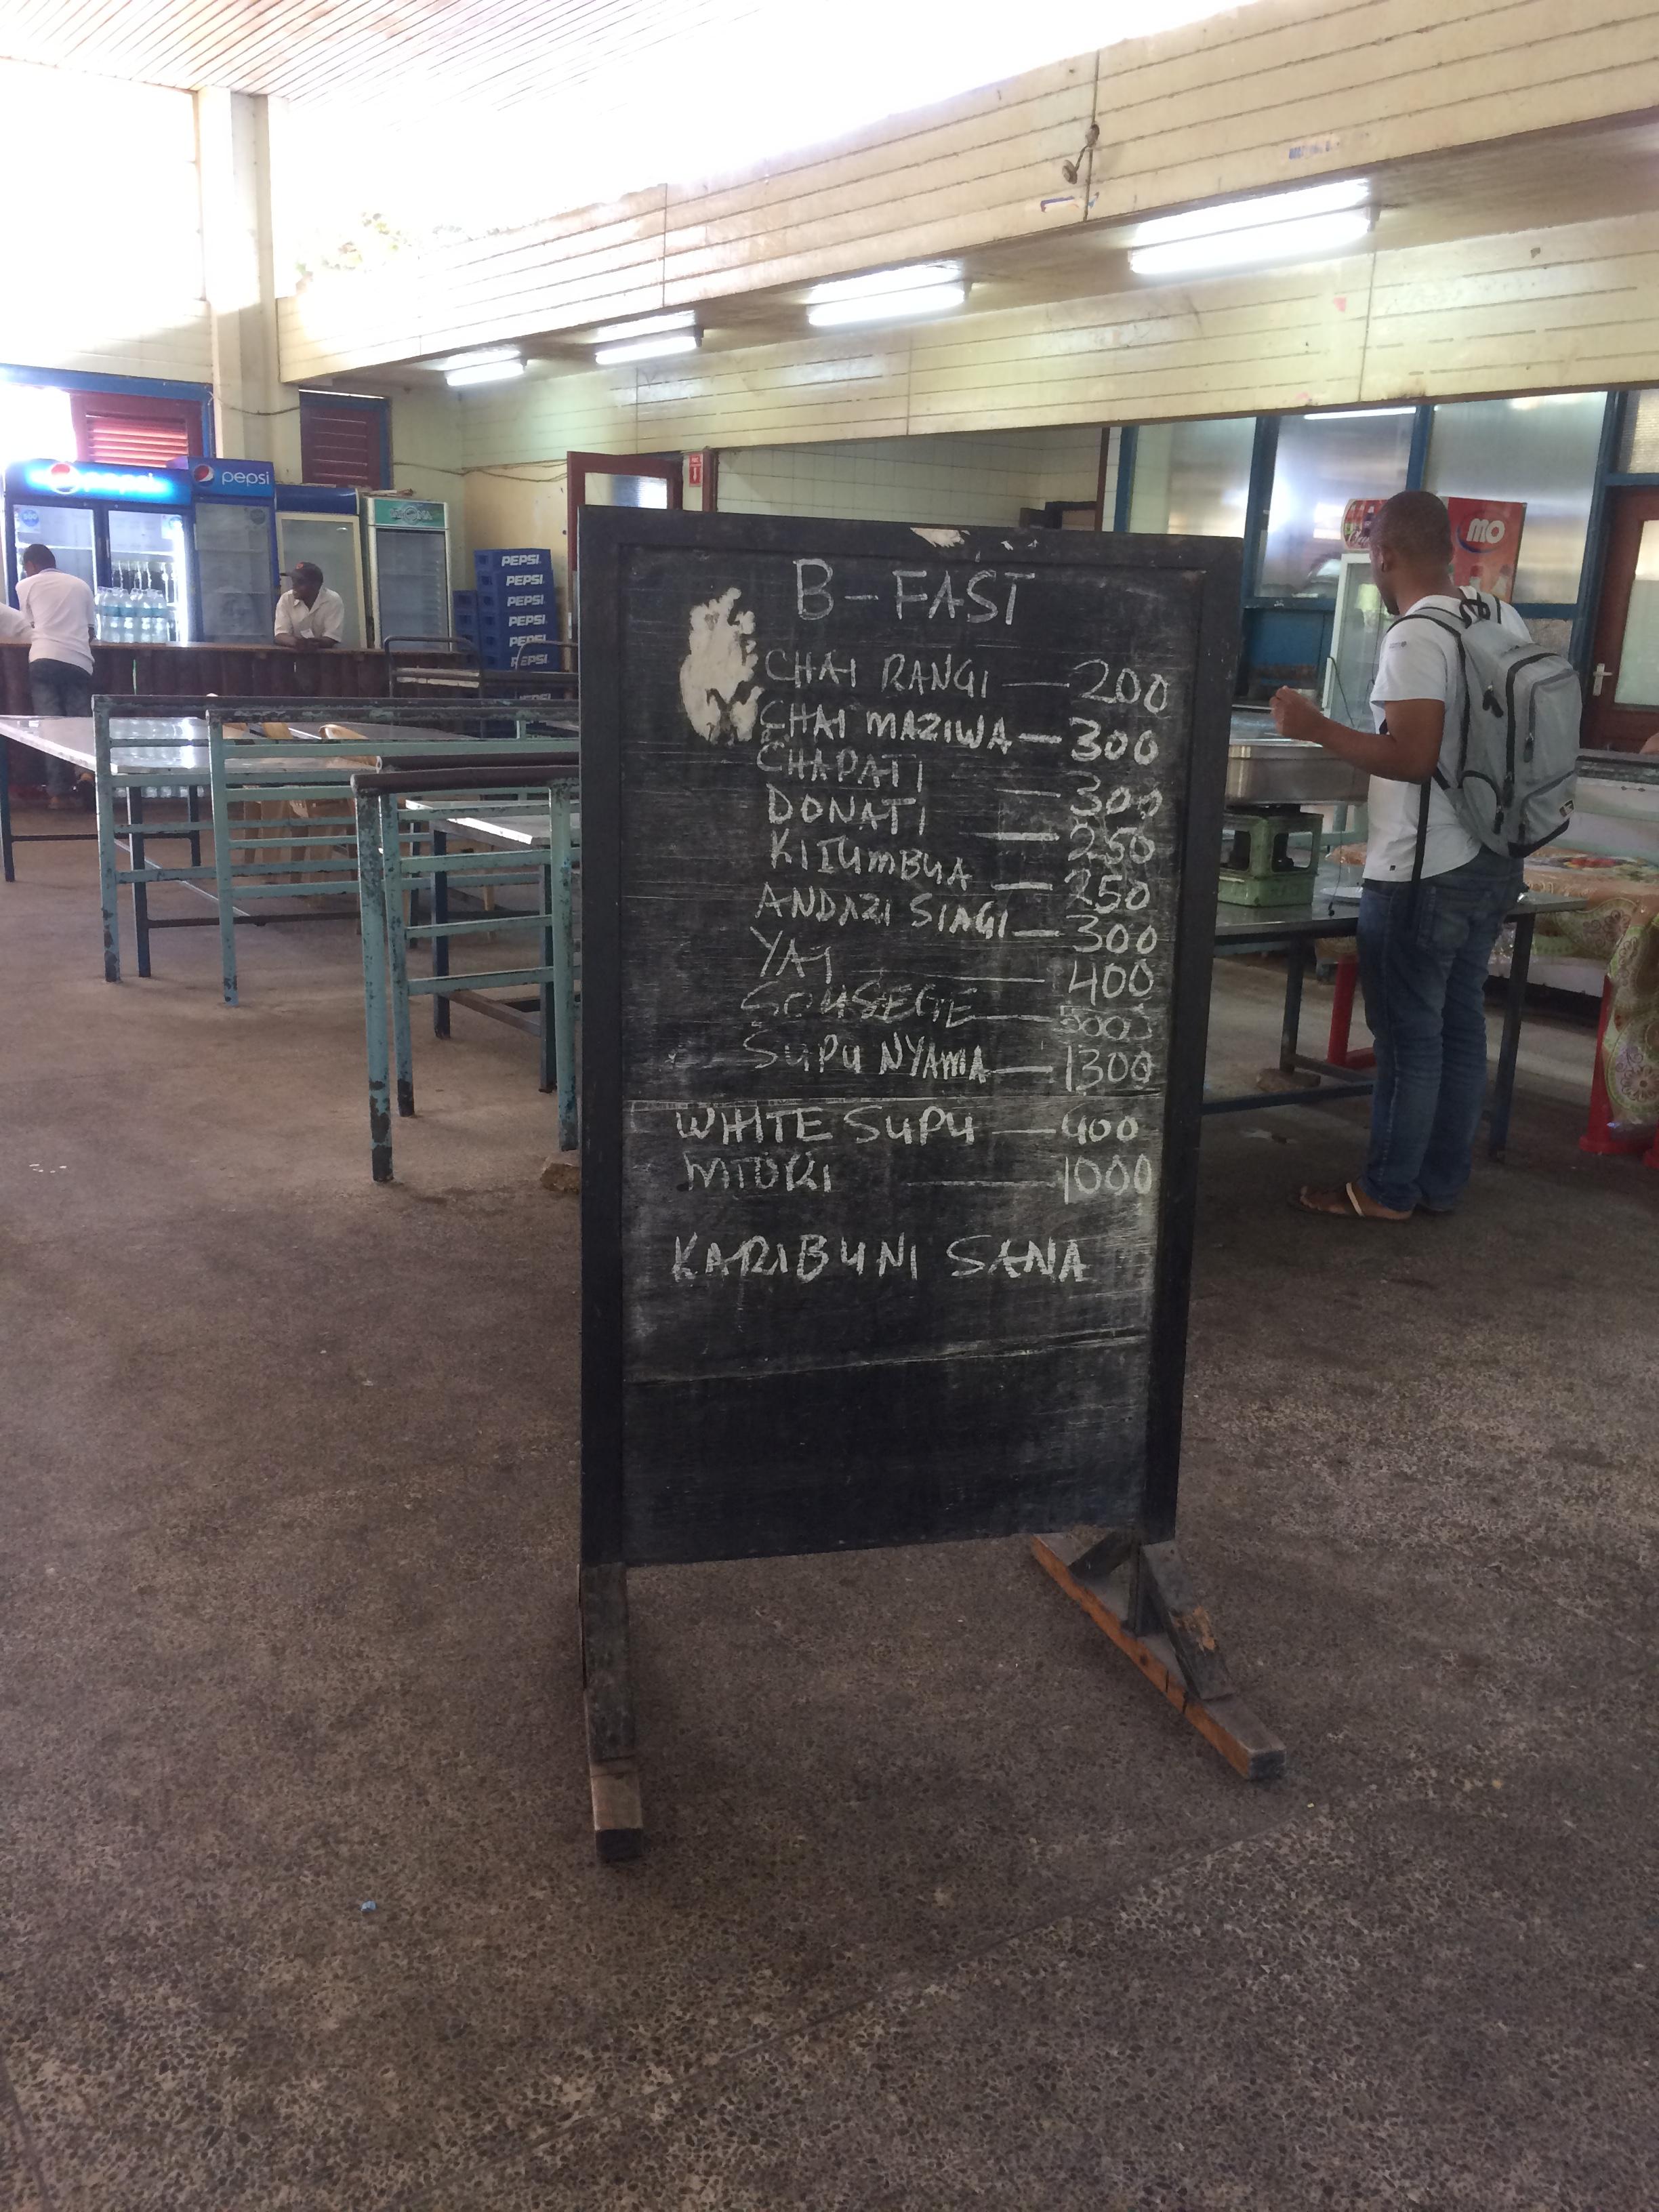 pepsi
pepsi
PEPSI
PEPSI
PEPSI
PEPSI
PEPSI
PEPSI
MO
B-FAST
CHAI RANGI — 200
CHAI MAZIWA — 300
CHAPATI — 300
DONATI — 250
KITUMBUA — 250
ANDAZI SIAGI — 300
YAI — 400
SOUSEGE — 500
SUPU NYAMA — 1300
WHITE SUPU — 400
MTORI — 1000
KARIBUNI SANA